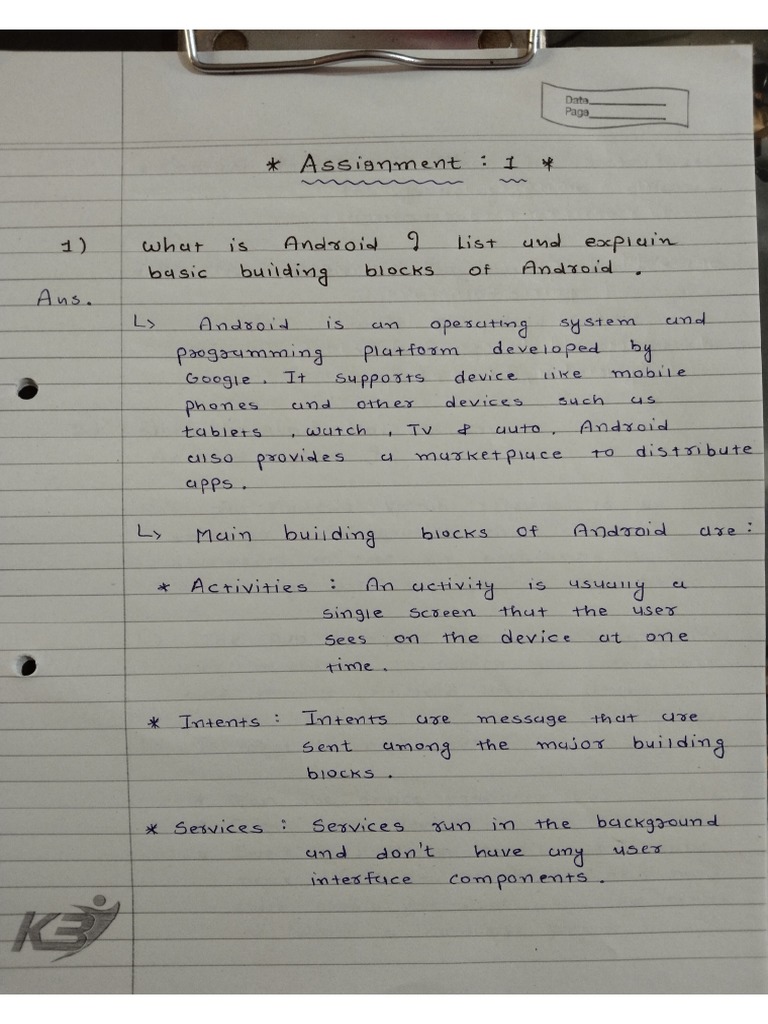 Date
Page
* Assignment : 1 *
1) What is Android ? List and explain
basic building blocks of Android.
Ans.
↳ Android is an operating system and
programming platform developed by
Google. It supports device like mobile
phones and other devices such as
tablets, watch, TV & auto. Android
also provides a marketplace to distribute
apps.
↳ Main building blocks of Android are:
* Activities : An activity is usually a
single screen that the user
sees on the device at one
time.
* Intents : Intents are message that are
sent among the major building
blocks.
* Services : Services run in the background
and don't have any user
interface components.
K3